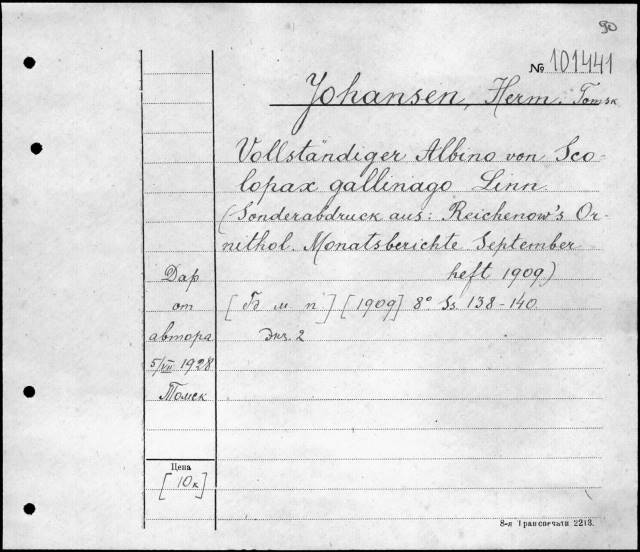 90
№ 101441
Johansen, Herm. Tomsk
Vollständiger Albino von Sco-
lopax gallinago Linn.
(Sonderabdruck aus: Reichenow's Or-
nithol. Monatsberichte September
heft 1909)
[бг м п] [1909] 8° Ss. 138-140.
экз. 2
Дар
от
автора
5/VII 1928
Томск
Цена
[10к]
8-я Транспечати 2213.